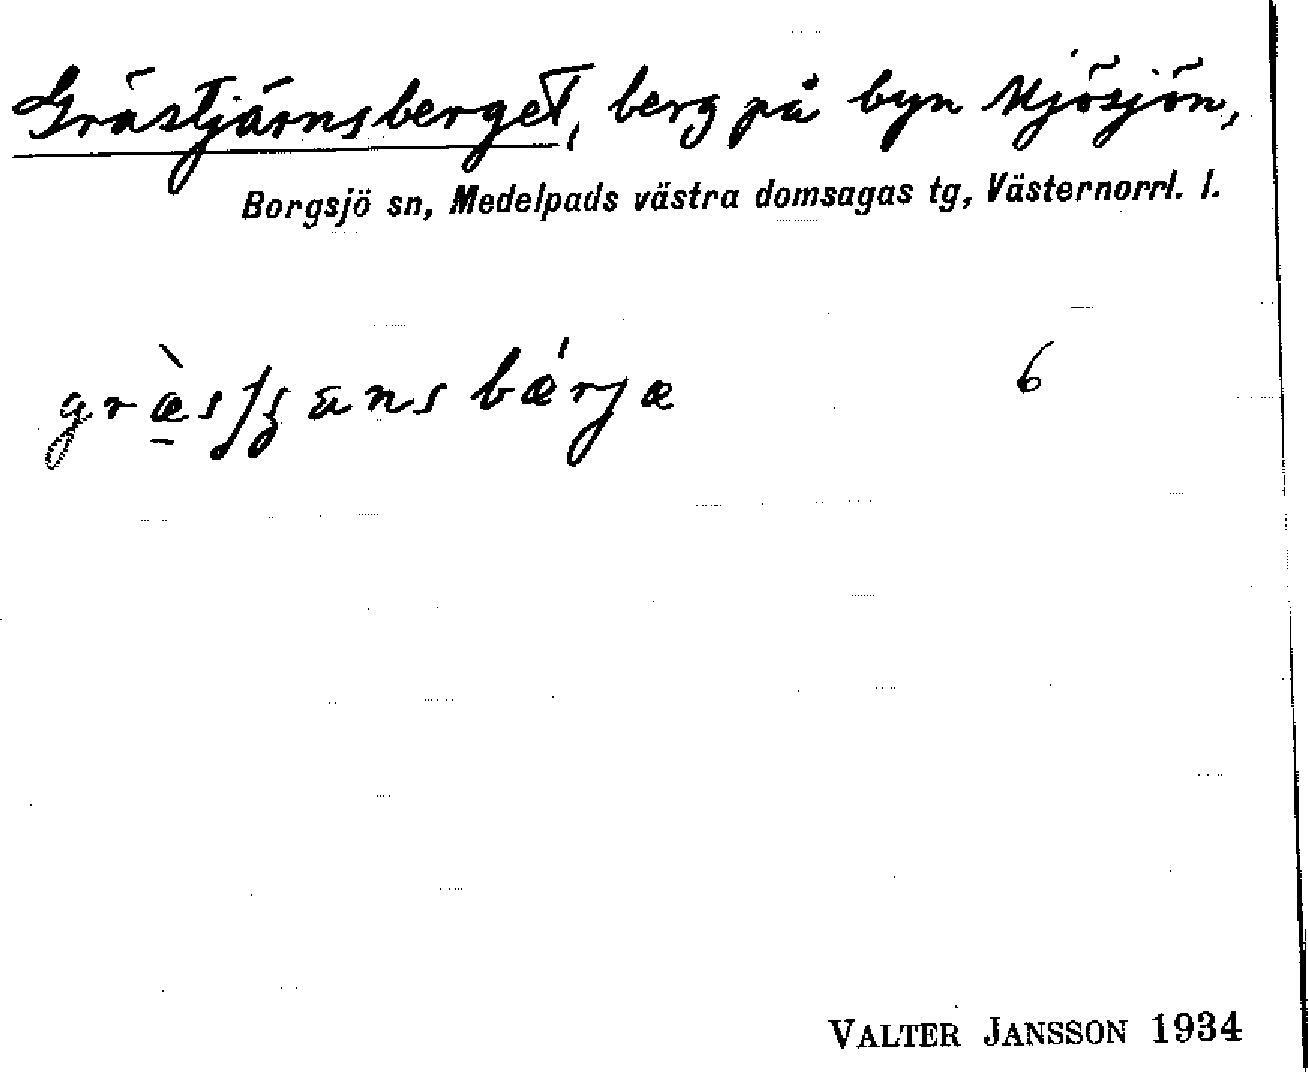 Grästjärnsberget, berg på byn Mjösjön,
Borgsjö sn, Medelpads västra domsagas tg, Västernorrl. l.
6
VALTER JANSSON 1934